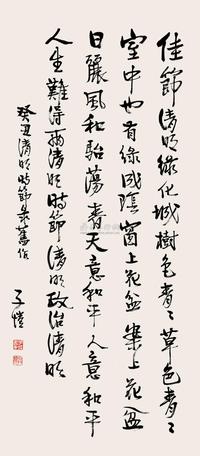 佳節清明綠化城樹色青〻草色青〻
室中也有綠成陰窗上花盆案上花盆
日麗風和駘蕩春天意和平人意和平
人生難得兩清明時節清明政治清明
癸丑清明時節录舊作
子愷